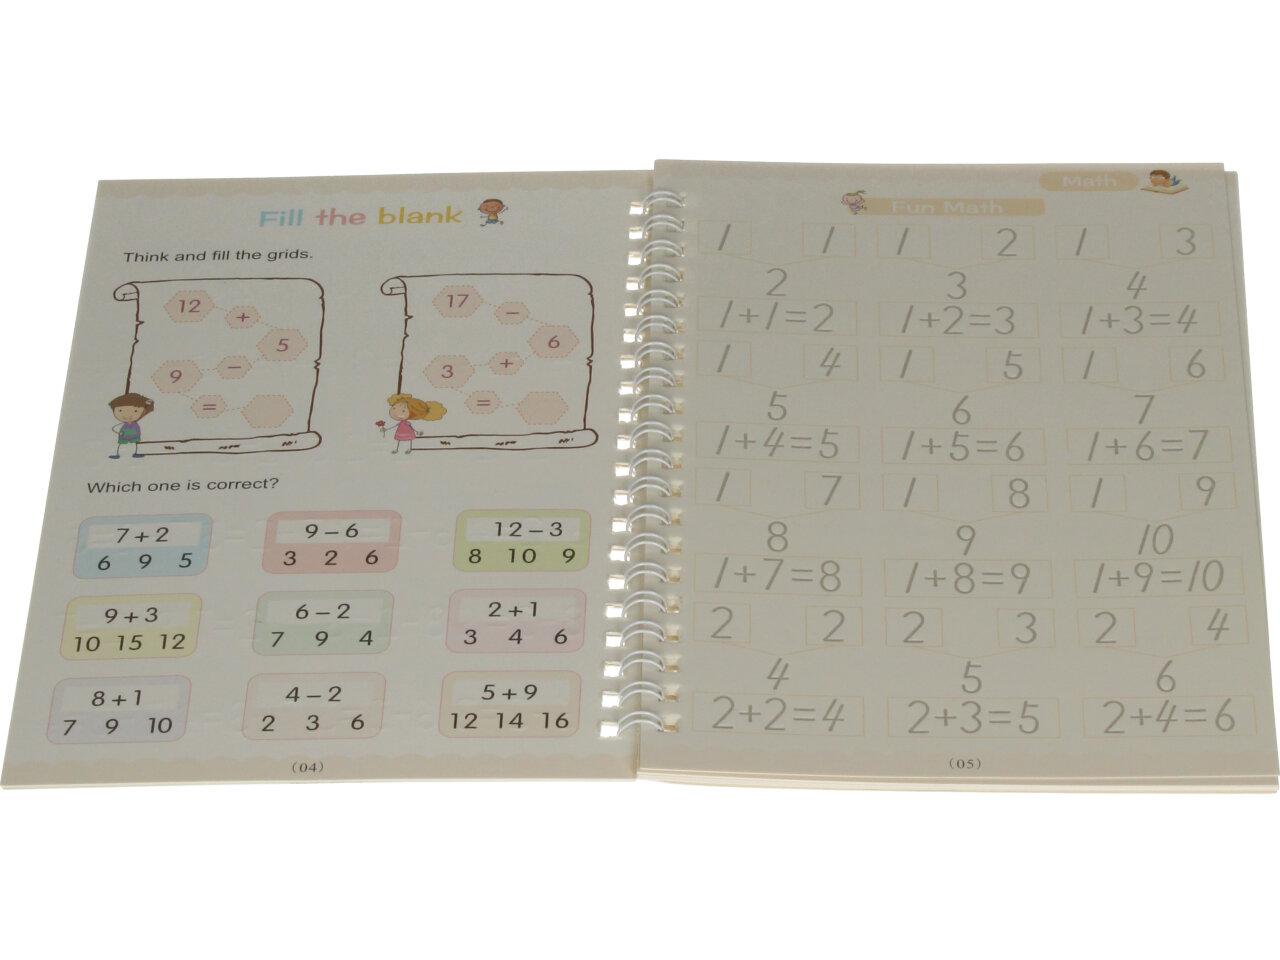 Fill the blank
Think and fill the grids.
12
+
5
−
9
=
17
−
6
+
3
=
Which one is correct?
7+2
6 9 5
9−6
3 2 6
12−3
8 10 9
9+3
10 15 12
6−2
7 9 4
2+1
3 4 6
8+1
7 9 10
4−2
2 3 6
5+9
12 14 16
(04)
Math
Fun Math
1 1 1 2 1 3
2 3 4
1+1=2 1+2=3 1+3=4
1 4 1 5 1 6
5 6 7
1+4=5 1+5=6 1+6=7
1 7 1 8 1 9
8 9 10
1+7=8 1+8=9 1+9=10
2 2 2 3 2 4
4 5 6
2+2=4 2+3=5 2+4=6
(05)